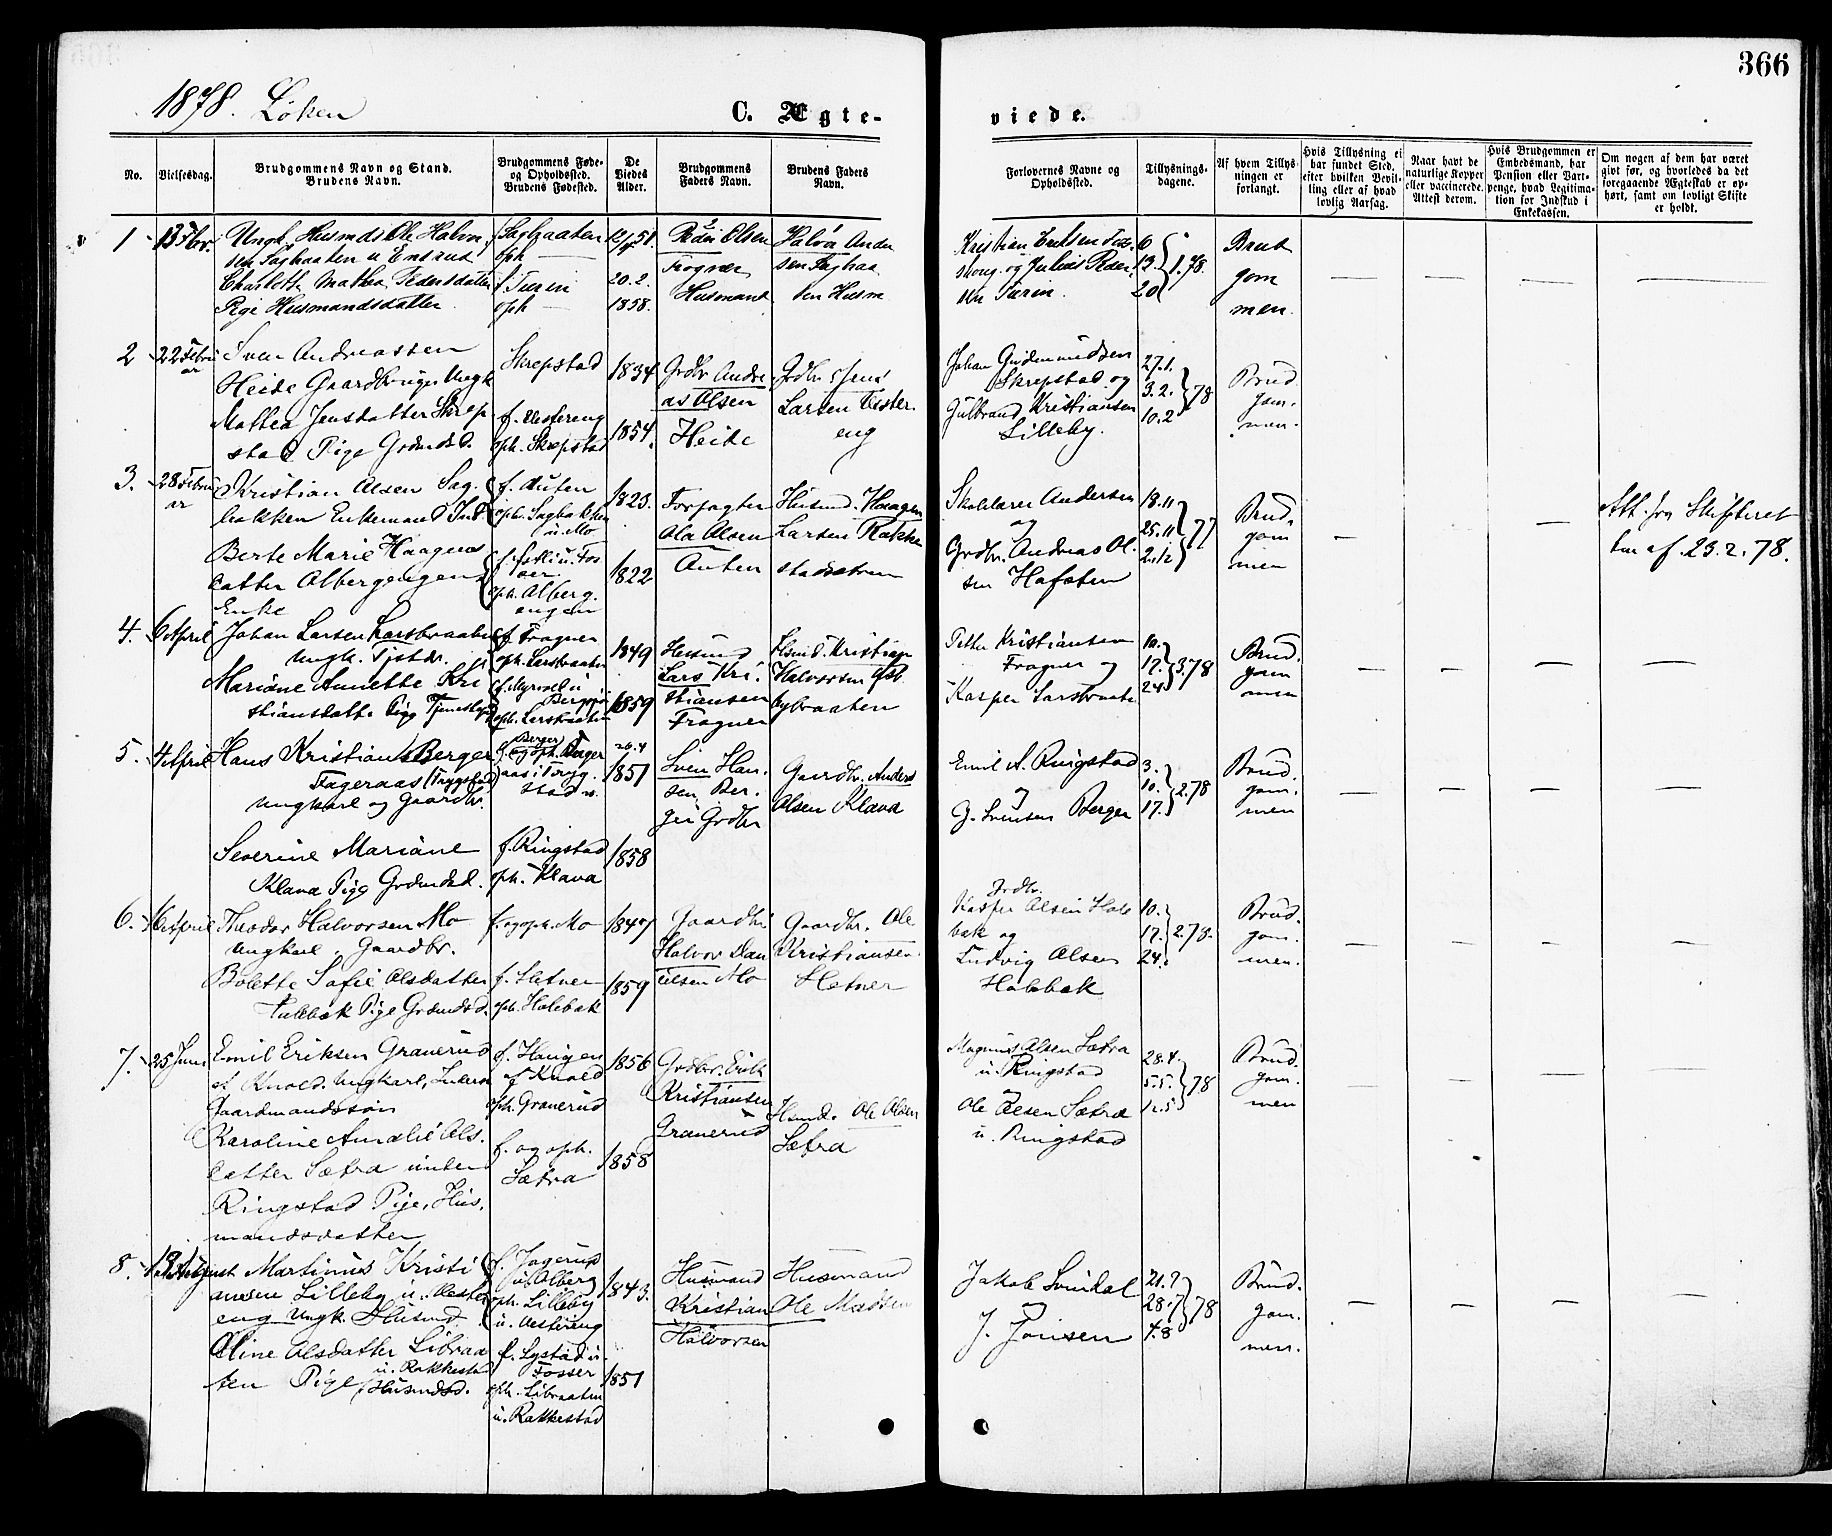 366
1878. Løken
C. Ægte-
viede.
No.
Vielsesdag.
Brudgommens Navn og Stand.
Brudens Navn.
Brudgommens Føde-
og Opholdssted.
Brudens Fødested.
De
Viedes
Alder.
Brudgommens
Faders Navn.
Brudens Faders
Navn.
Forlovernes Navne og
Opholdssted.
Tillysnings-
dagene.
Af hvem Tillys-
ningen er
forlangt.
Hvis Tillysning ei
har fundet Sted,
efter hvilken Bevil-
ling eller af hvad
lovlig Aarsag.
Naar havt de
naturlige Kopper
eller vaccinerede.
Attest derom.
Hvis Brudgommen er
Embedsmand, har
Pension eller Vart-
penge, hvad Legitima-
tion for Indskud i
Enkekassen.
Om nogen af dem har været
givt før, og hvorledes da det
foregaaende Ægteskab er op-
hørt, samt om lovligt Skifte
er holdt.
1
13 Fbr.
Ungk. Husmds Ole Halvor
sen Saghaaten u Ensrud
Charlotte Mathea Pedersdatter
Pige Husmandsdatter
Saghaaten
oph —
f. Turin
oph —
51.
20.2.
1858.
Peder Olsen
Frogner
Husmand
Halvor Ander
sen Saghaa
ten Husm
Kristian Eriksen
skoug og Julius Peder
sen Turin.
6
13
20
1.78.
Brud
gom
men.
2
22 Febru
ar
Sven Andreassen
Heide Gaardbruger Ungk
Mathea Jensdatter Skrep
stad Pige Grdmdsd.
Skrepstad
f. Vestereng
oph. Skrepstad
1834
1854
Grdbr Andre
as Olsen
Heide
Grdbr Jens
Larsen Vester
eng
Johan Gudmundsen
Skrepstad og
Gulbrand Kristiansen
Lilleby.
27.1.
3.2.
10.2
78
Brud
gom.
men.
3.
28 Febru
ar
Kristian Olsen Sag.
bakken Enkemand Ind
Berte Marie Haagens
datter Albergengen
Enke
f. Auten
oph. Sagbakken
u. Mo
oph. Alberg.
engen
1823.
1822
Forpagter
Ola Olsen
Auten
Husmd. Haagen
Larsen Rakke
stadstrøm
Skolelærer Andersen
og
Grdbr. Andreas Ol.
sen Hafsten
18.11
25.11
2.12
77
Brud.
gom
men
Att. fra Skifteret
ten af 23.2.78.
4.
6 April
Johan Larsen Larsbraaten
Ungk. Tjstkr.
Mariane Annette Kri
stiansdatt. Pige Tjenestepi
f. Frogner
oph. Larsbraaten
f. Myrvold u
Berger
oph. Larsbraaten
1849
1859
Husmd
Lars Kri.
stiansen
Frogner
Husmd. Kristian
Halvorsen
bybraaten
Petter Kristiansen
Frogner og
Kasper Larsbraate
10.
17.
24
3.78
Brud.
gom
men
5.
4 April
Hans Kristian Berger
Fageraas (Trygstad
Ungkarl og Gaardbr.
Severine Mariane
Klava Pige Grdmdsd.
Berger
f. og oph. Fager
aas i Tryg.
stad
f. Ringstad
oph. Klava
26.4
1851
1858
Sven Han.
sen, Ber.
ger Grdbr
Gaardbr. Anders
Olsen Klava
Emil A. Ringstad
og
G. Svensen Berger
3.
10.
17.
2.78
Brud.
gom.
men
6.
16 April
Theodor Halvorsen Mo
Ungkarl, Gaardbr.
Bolette Sofie Olsdatter
Hallebæk Pige Grdmdsd.
f. og oph. Mo
f. Hetner
oph. Holebæk
1847
1859
Gaardbr
Halvor Dan
ielsen Mo
Gaardbr. Ole
Kristiansen
Hetner
Grdbr.
Kasper Olsen Hole
bæk og
Ludvig Olsen
Holebæk
10.
17.
24.
2.78.
Brud.
gom.
men.
7.
25 Juni
Emil Eriksen Granerud
af Knold. Ungkarl,
Gaardmandssøn
Karoline Amalie Ols.
datter Sætra under
Ringstad Pige, Hus,
mandsdatter
f. Haugen
af Knold
oph. Granerud
f. og oph.
Sætra
1856
1858
Grdbr. Erik
Kristiansen
Granerud
Husmd. Ole Olsen
Sætra
Magnus Olsen Sætra
u. Ringstad
Ole Olsen Sætra
u. Ringstad
28.4.
5.5.
12.5
78
Brud.
gom.
men
8.
13 August
Martinus Kristi
ansen Lilleby u. Vester
eng Ungk. Husmd.
Oline Olsdatter Libraa
u. Rakkestad
ten Pige, Husmdsd.
f. Jogerud
u. Alberg
oph. Lilleby
u. Vestereng
f. Lystad u.
Fosser
oph. Libraaten
u. Rakkestad
1843.
1851
Husmand
Kristian
Halvorsen
Husmand
Ole Madsen
Jakob Svindal
og
J. Jonsen
21.7
28.7
4.8
78
Brud.
gom.
men.